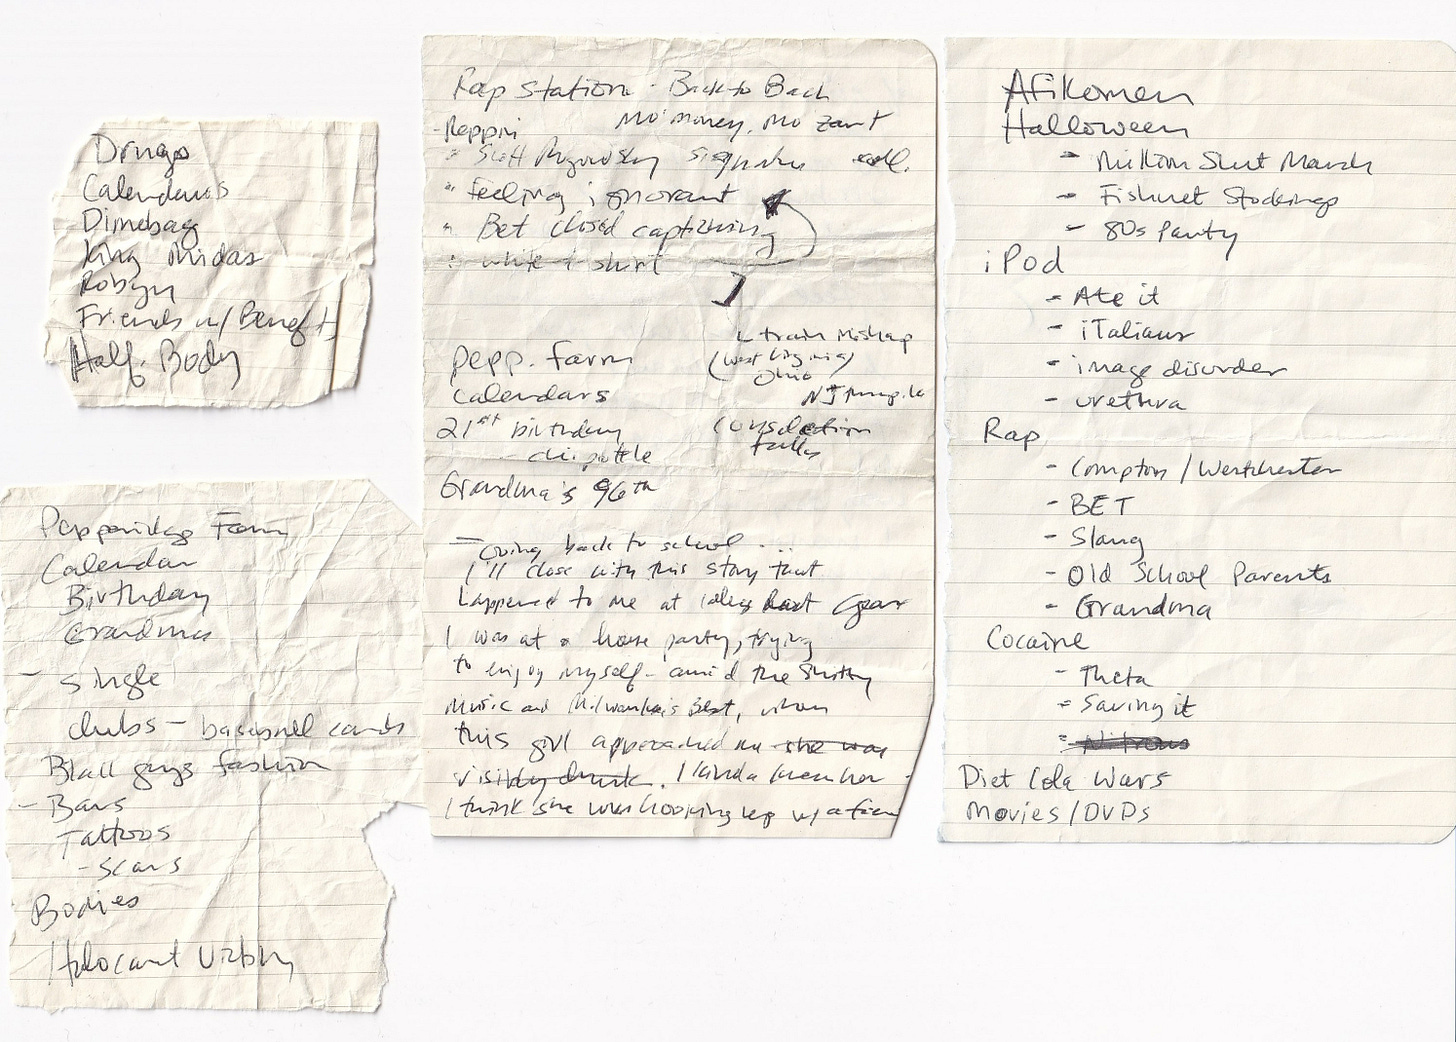 Drugs
Calendars
Dimebag
King Midas
Robyn
Friends w/ Benefits
Half. Body
Pepperidge Farm
Calendar
Birthday
Grandma
- Single
clubs - baseball cards
Black guys fashion
- Bars
Tattoos
- scars
Bodies
Holocaust
Rap Station - Back to Back
Mo' money, Mo zart
- Reppin
" Scott signature
" Feeling ignorant
" Bet closed captioning
" white t shirt
L train mishap
(West Virginia)
Ohio
NJ
Pepp. Farm
Calendars
21st birthday
- chipotle
Consolation
Grandma's 96th
- Going back to school ...
I'll close with this story that
happened to me at last year
I was at a house party, trying
to enjoy myself - amid the shitty
Music and Milwaukee's Best, when
this girl approached me she was
visibly drunk. I kinda knew her
I think she was hooking up w/ a
Afikomen
Halloween
- Million Slut March
- Fishnet Stockings
- 80s Party
iPod
- Ate it
- iTalians
- image disorder
- urethra
Rap
- Compton / Westchester
- BET
- Slang
- Old School Parents
- Grandma
Cocaine
- Theta
- Saving it
- Nitrous
Diet Cola Wars
Movies / DVDs